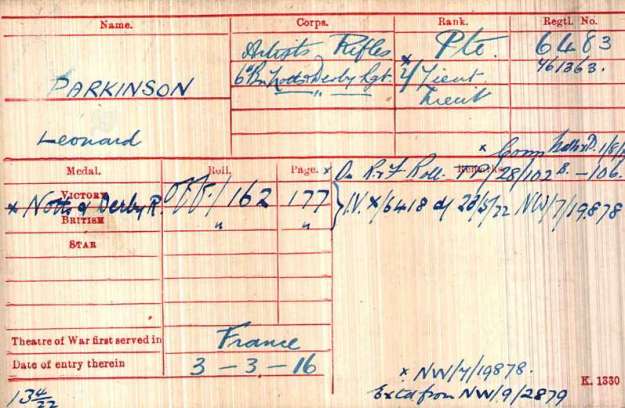 Name. Corps. Rank. Regtl. No.
Artists Rifles Pte. 6483
PARKINSON 6 Bn Notts & Derby Rgt x 2/Lieut 461363.
" Lieut
Leonard
x Comm Notts & D. 1/8/
Medal. Roll. Page. x On R. & F. Roll Remarks 28/102 B. - 106.
VICTORY
x Notts & Derby R. OFF/162 177 } I.V. x/6418 d/ 23/5/22 NW/7/19878
BRITISH " "
STAR
Theatre of War first served in France
Date of entry therein 3-3-16
x NW/7/19878. K. 1380
134/22 Extd from NW/9/2879